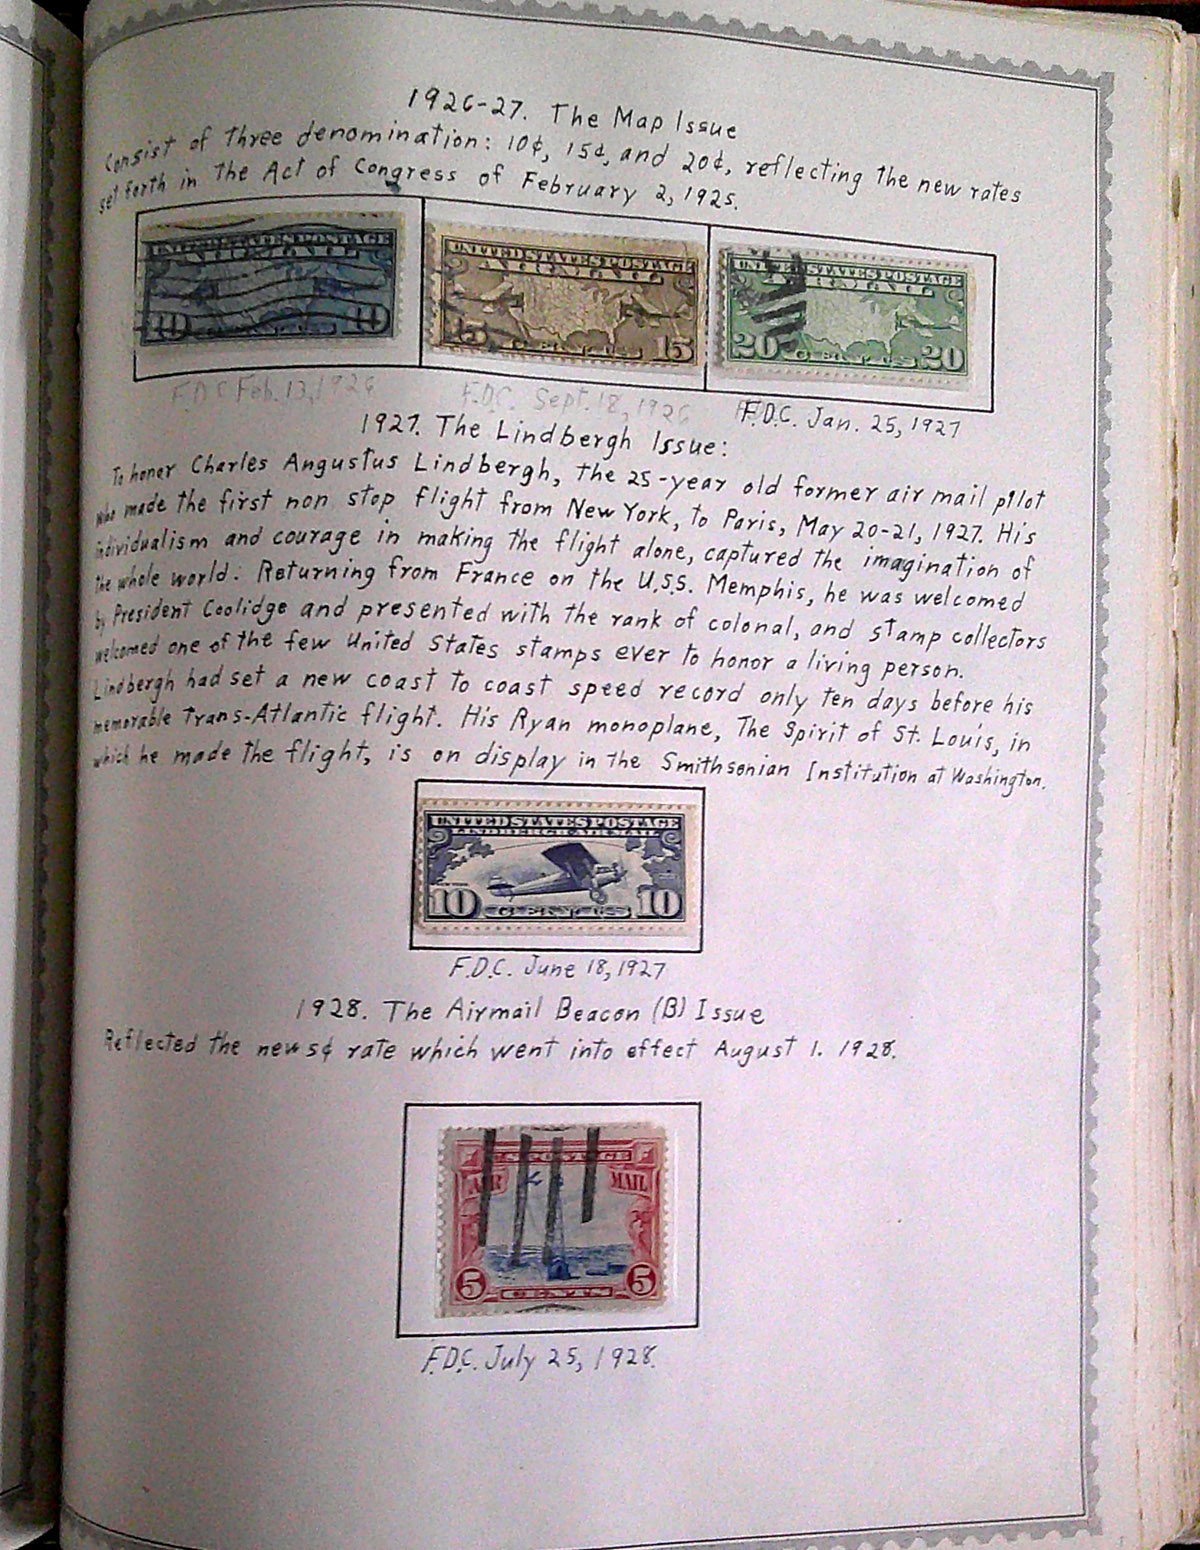 1926-27. The Map Issue
Consist of Three denomination: 10¢, 15¢, and 20¢, reflecting the new rates
set forth in the Act of Congress of February 2, 1925.
UNITED STATES POSTAGE
AIR MAIL
10 CENTS 10
UNITED STATES POSTAGE
AIR MAIL
15 CENTS 15
UNITED STATES POSTAGE
AIR MAIL
20 CENTS 20
F.D.C Feb. 13, 1926
F.D.C. Sept. 18, 1926
F.D.C. Jan. 25, 1927
1927. The Lindbergh Issue:
To honor Charles Angustus Lindbergh, the 25-year old former air mail pilot
who made the first non stop flight from New York, to Paris, May 20-21, 1927. His
individualism and courage in making the flight alone, captured the imagination of
the whole world. Returning from France on the U.S.S. Memphis, he was welcomed
by President Coolidge and presented with the rank of colonal, and stamp collectors
welcomed one of the few United States stamps ever to honor a living person.
Lindbergh had set a new coast to coast speed record only ten days before his
memorable Trans-Atlantic flight. His Ryan monoplane, The Spirit of St. Louis, in
which he made the flight, is on display in the Smithsonian Institution at Washington.
UNITED STATES POSTAGE
LINDBERGH AIR MAIL
NEW YORK
10 CENTS 10
F.D.C. June 18, 1927
1928. The Airmail Beacon (B) Issue
Reflected the new 5¢ rate which went into effect August 1. 1928.
U.S. POSTAGE
AIR MAIL
5 CENTS 5
F.D.C. July 25, 1928.